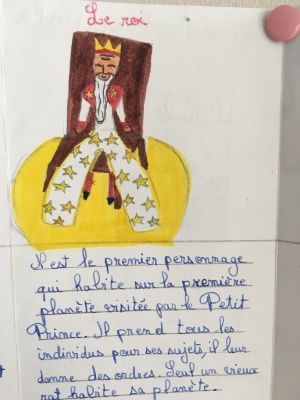 Le roi
Il est le premier personnage
qui habite sur la première
planète visitée par le Petit
Prince. Il prend tous les
individus pour ses sujets, il leur
donne des ordres. Seul un vieux
rat habite sa planète.